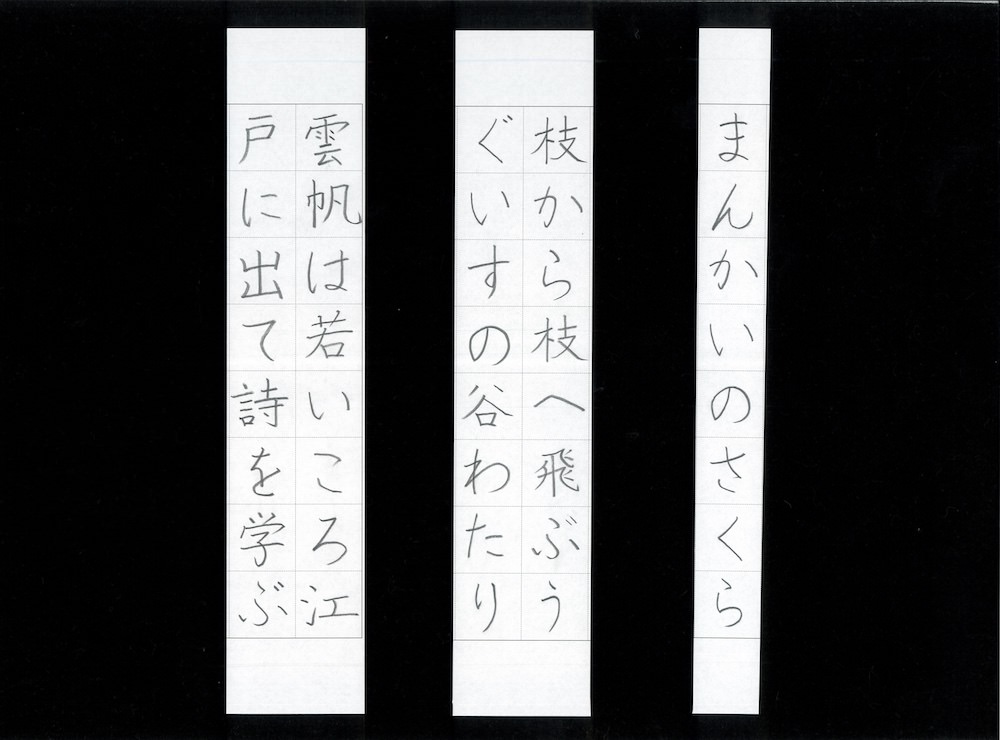 まんかいのさくら
枝から枝へ飛ぶう
ぐいすの谷わたり
雲帆は若いころ江
戸に出て詩を学ぶ